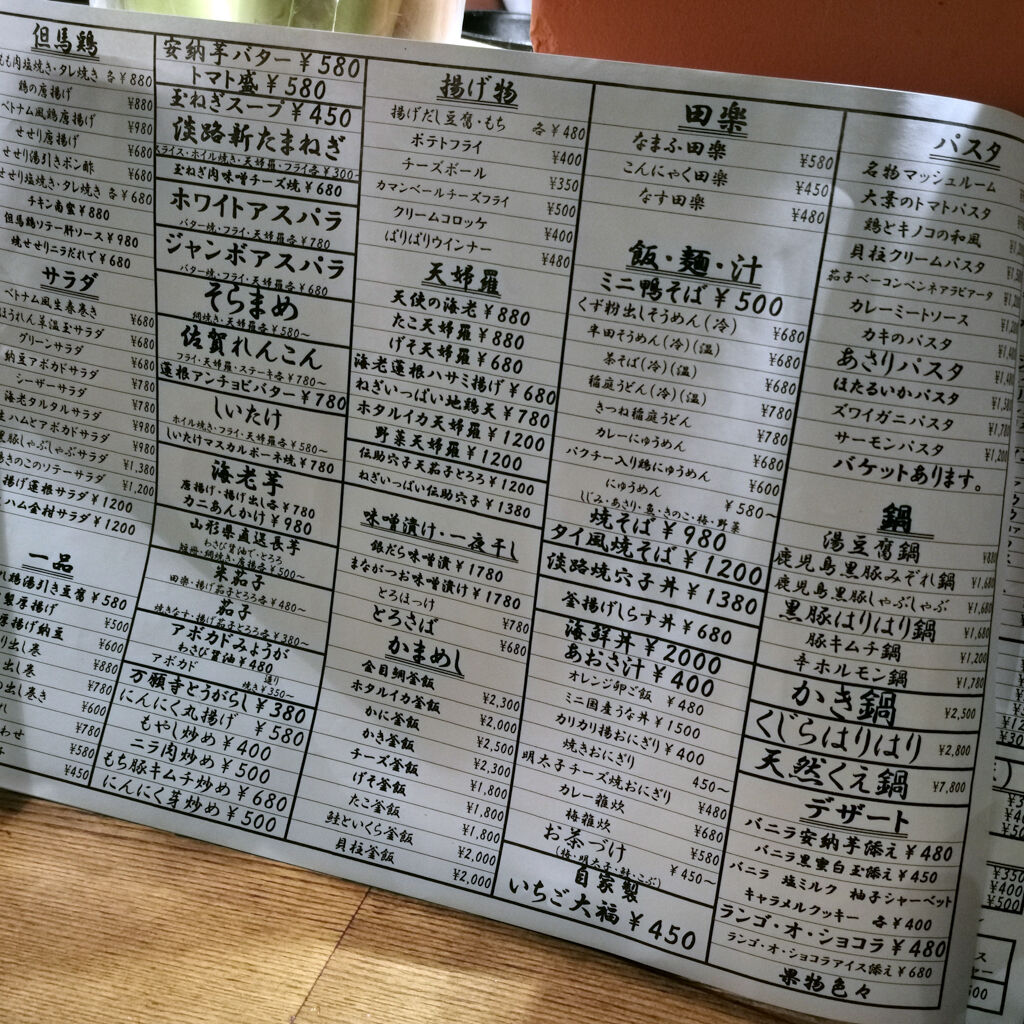 但馬鶏
もも肉塩焼き・タレ焼き 各¥880
鶏の唐揚げ ¥880
ベトナム風鶏唐揚げ ¥980
せせり唐揚げ ¥680
せせり湯引きポン酢 ¥680
せせり塩焼き・タレ焼き 各¥680
チキン南蛮¥880
但馬鶏ソテー肝ソース¥980
焼せせりニラだれで¥680
サラダ
ベトナム風生春巻き ¥680
ほうれん草温玉サラダ ¥680
グリーンサラダ ¥680
納豆アボカドサラダ ¥680
シーザーサラダ ¥780
海老タルタルサラダ ¥780
生ハムとアボカドサラダ ¥980
黒豚しゃぶしゃぶサラダ ¥1,380
焼きのこのソテーサラダ ¥1,200
揚げ蓮根サラダ¥1200
ハム金村サラダ¥1200
一品
鶏湯引き豆腐¥580
製厚揚げ ¥500
厚揚げ納豆 ¥600
り出し巻 ¥880
出し巻 ¥780
の出し巻き ¥600
¥780
わせ ¥580
¥450
安納芋バター¥580
トマト盛¥580
玉ねぎスープ¥450
淡路新たまねぎ
スライス・ホイル焼き・天婦羅・フライ各¥300~
玉ねぎ肉味噌チーズ焼¥680
ホワイトアスパラ
バター焼・フライ・天婦羅各¥780
ジャンボアスパラ
バター焼・フライ・天婦羅各¥680
そらまめ
網焼き・天婦羅各¥580~
佐賀れんこん
フライ・天婦羅・ステーキ各¥780~
蓮根アンチョビバター¥780
しいたけ
ホイル焼き・フライ・天婦羅各¥580~
しいたけマスカルポーネ焼¥780
海老芋
唐揚げ・揚げ出し各¥780
カニあんかけ¥980
山形県直送長芋
わさび醤油で・とろろ
短冊・網焼き・唐揚各¥500~
朱茄子
田楽・揚げ茄子とろろ各¥480~
茄子
焼きなす・揚げ茄子とろろ各¥380~
アボカドみょうが
わさび醤油¥480
アボカド 造り
焼き¥350~
万願寺とうがらし¥380
にんにく丸揚げ ¥580
もやし炒め¥400
ニラ肉炒め¥500
もち豚キムチ炒め¥680
にんにく芽炒め¥500
揚げ物
揚げだし豆腐・もち 各¥480
ポテトフライ ¥400
チーズボール ¥350
カマンベールチーズフライ ¥500
クリームコロッケ ¥400
ぱりぱりウインナー ¥480
天婦羅
天使の海老¥880
たこ天婦羅¥880
げそ天婦羅¥680
海老蓮根ハサミ揚げ¥680
ねぎいっぱい地鶏天¥780
ホタルイカ天婦羅¥1200
野菜天婦羅¥1200
伝助穴子天茄子とろろ¥1200
ねぎいっぱい伝助穴子¥1380
味噌漬け・一夜干し
銀だら味噌漬¥1780
まながつお味噌漬け¥1780
とろほっけ ¥780
とろさば ¥680
かまめし
金目鯛釜飯 ¥2,300
ホタルイカ釜飯 ¥2,000
かに釜飯 ¥2,500
かき釜飯 ¥2,300
チーズ釜飯 ¥1,800
げそ釜飯 ¥1,800
たこ釜飯 ¥1,800
鮭といくら釜飯 ¥2,000
貝柱釜飯 ¥2,000
田楽
なまふ田楽 ¥580
こんにゃく田楽 ¥450
なす田楽 ¥480
飯・麺・汁
ミニ鴨そば¥500
くず粉出しそうめん(冷) ¥680
半田そうめん(冷)(温) ¥680
茶そば(冷)(温) ¥680
稲庭うどん(冷)(温) ¥780
きつね稲庭うどん ¥780
カレーにゅうめん ¥680
パクチー入り鶏にゅうめん ¥600
にゅうめん ¥580~
しじみ・あさり・魚・きのこ・梅・野菜
焼そば¥980
タイ風焼そば¥1200
淡路焼穴子丼¥1380
釜揚げしらす丼¥680
海鮮丼¥2000
あおさ汁¥400
オレンジ卵ご飯 ¥480
ミニ国産うな丼¥1500
カリカリ揚おにぎり¥400
焼きおにぎり 450~
明太子チーズ焼おにぎり ¥480
カレー雑炊 ¥680
梅雑炊 ¥580
お茶づけ ¥450~
(梅・明太子・鮭・こぶ)
自家製
いちご大福¥450
パスタ
名物マッシュルーム
大葉のトマトパスタ
鶏とキノコの和風
貝柱クリームパスタ
茄子ベーコンペンネアラビアータ
カレーミートソース
カキのパスタ
あさりパスタ
ほたるいかパスタ
ズワイガニパスタ
サーモンパスタ
バケットあります。
鍋
湯豆腐鍋 ¥880
鹿児島黒豚みぞれ鍋 ¥1,680
鹿児島黒豚しゃぶしゃぶ ¥1,680
黒豚はりはり鍋 ¥1,680
豚キムチ鍋 ¥1,200
辛ホルモン鍋 ¥1,780
かき鍋 ¥2,500
くじらはりはり ¥2,800
天然くえ鍋 ¥7,800
デザート
バニラ安納芋添え¥480
バニラ黒蜜白玉添え¥450
バニラ 塩ミルク 柚子シャーベット
キャラメルクッキー 各¥400
ランゴ・オ・ショコラ¥480
ランゴ・オ・ショコラアイス添え¥680
果物色々